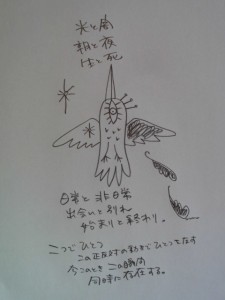 光と闇
朝と夜
生と死
日常と非日常
出会いと別れ
始まりと終わり。
二つでひとつ
この正反対の動きでひとつをなす
今このとき この瞬間
同時に存在する。